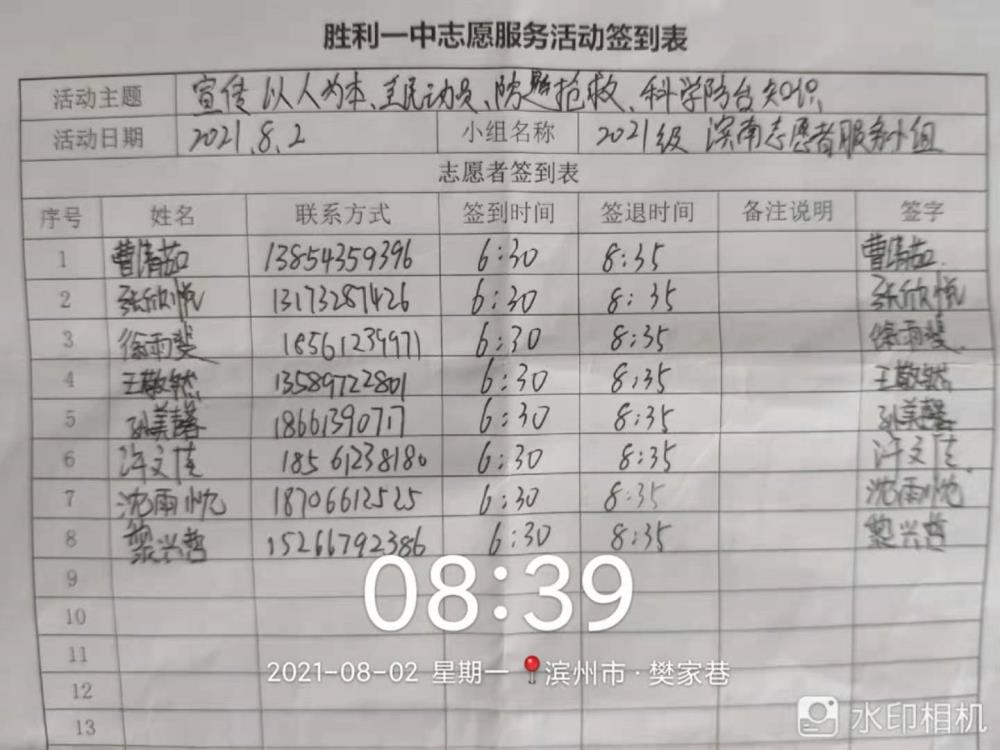 胜利一中志愿服务活动签到表
活动主题 宣传以人为本、全民动员、防 抢救、科学防台知识
活动日期 2021.8.2 小组名称 2021级 滨南志愿者服务小组
志愿者签到表
序号 姓名 联系方式 签到时间 签退时间 备注说明 签字
1 曹清茹 13854359396 6:30 8:35 曹清茹
2 张欣悦 13173287426 6:30 8:35 张欣悦
3 徐雨斐 18561239971 6:30 8:35 徐雨斐
4 王敬然 13589722801 6:30 8:35 王敬然
5 孙美馨 18661390717 6:30 8:35 孙美馨
6 许文佳 18561238180 6:30 8:35 许文佳
7 沈雨忱 18706612525 6:30 8:35 沈雨忱
8 黎兴哲 15266792386 6:30 8:35 黎兴哲
9
10
11
12
13
08:39
2021-08-02 星期一 滨州市·樊家巷
水印相机